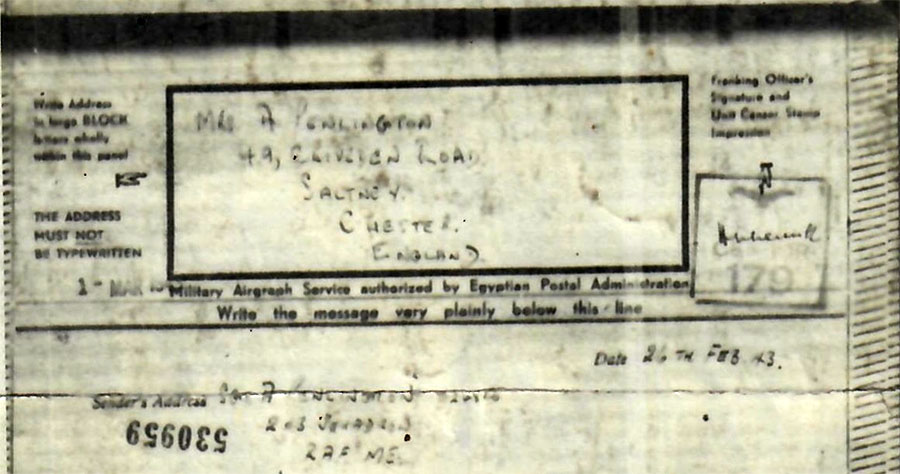 Write Address
in large BLOCK
letters wholly
within this panel
THE ADDRESS
MUST NOT
BE TYPEWRITTEN
MRS A PENLINGTON
49, CLIVEDEN ROAD
SALTNEY
CHESTER.
ENGLAND
Franking Officer's
Signature and
Unit Censor Stamp
Impression
179
1 - MAR
Military Airgraph Service authorized by Egyptian Postal Administration
Write the message very plainly below this line
Date 26TH FEB 43.
Sender's Address SGT A PENLINGTON
203 SQUADRON
RAF ME.
530959